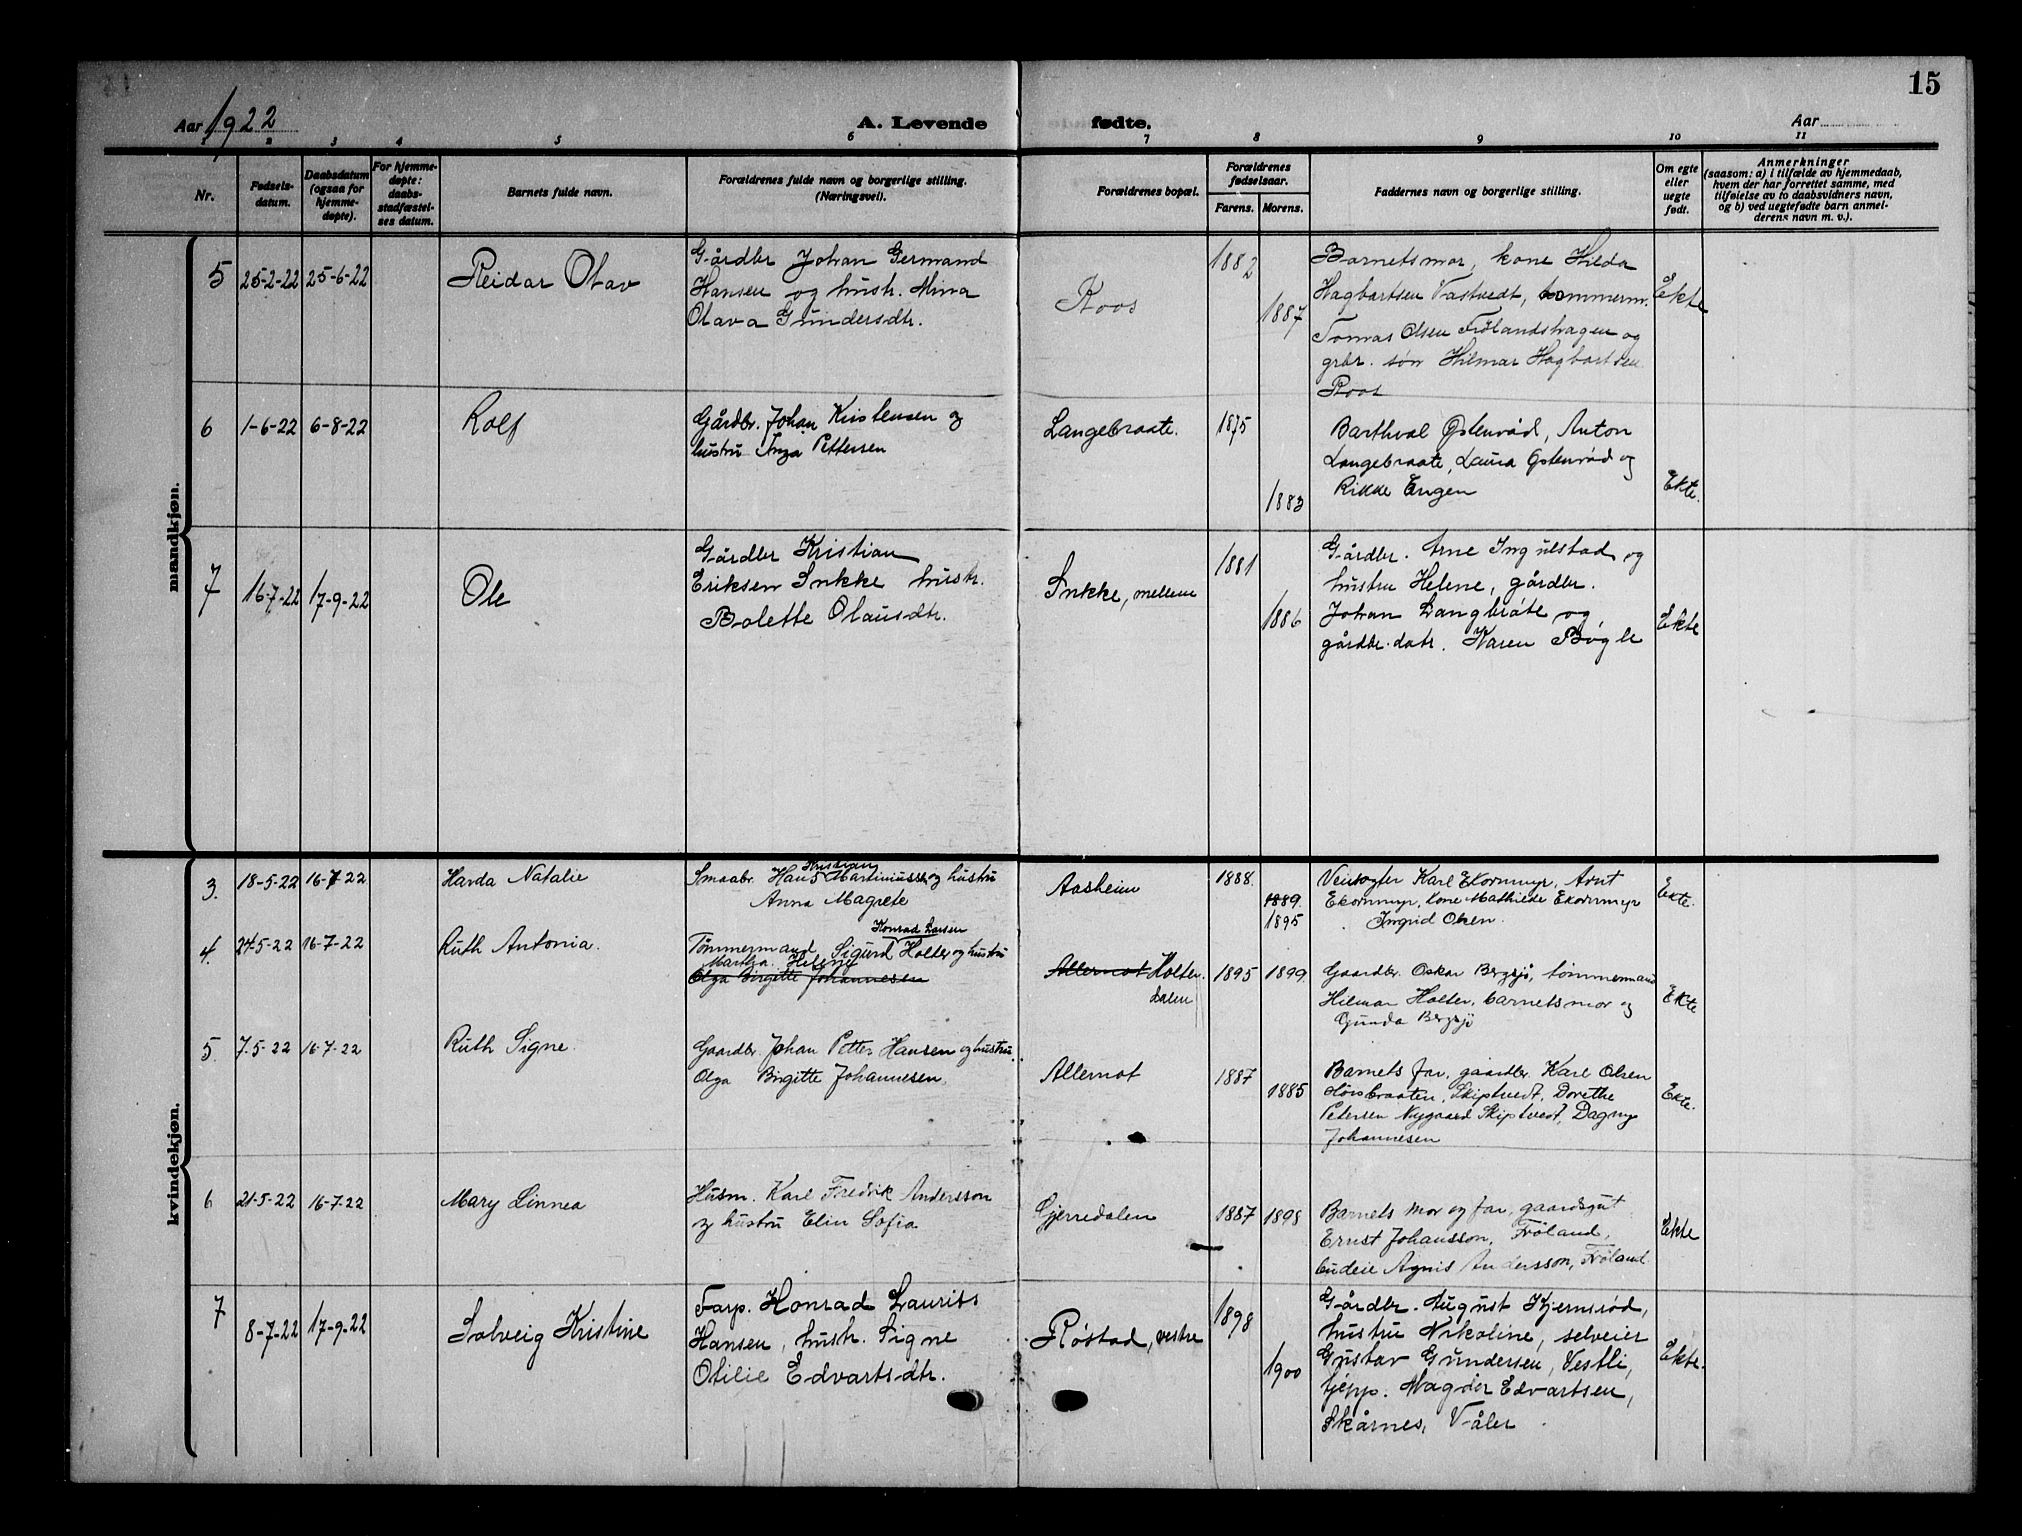 15
Aar 1922 A. Levende fødte. Aar
1 2 3 4 5 6 7 8 9 10 11
Nr.
Fødsels-
datum.
Daabsdatum
(ogsaa for
hjemme-
døpte).
For hjemme-
døpte:
daabs-
stadfæstel-
ses datum.
Barnets fulde navn.
Forældrenes fulde navn og borgerlige stilling.
(Næringsvei).
Forældrenes bopæl.
Forældrenes
fødselsaar.
Farens. Morens.
Faddernes navn og borgerlige stilling.
Om egte
eller
uegte
født.
Anmerkninger
(saasom: a) i tilfælde av hjemmedaab,
hvem der har forrettet samme, med
tilføielse av to daabsvidners navn,
og b) ved uegtefødte barn anmel-
derens navn m. v.).
mandkjøn.
5 25-2-22 25-6-22
Reidar Olav
Gårdbr Johan Germand
Hansen og hustr. Mina
Olava Gundersdtr.
Roos
1882
1887
Barnetsmor, kone Hilda
Hagbartsen Vastvedt, tømmerm.
Tomas Olsen Frølandshagen og
grbr. søn Hilmar Hagbartsen
Roos
Ekte
6 1-6-22 6-8-22
Rolf
Gårdbr. Johan Kristensen og
hustru Inga Pettersen
Langebraate.
1875
1883
Barthval Østenrød, Anton
Langebraate, Laura Østenrød og
Rikke Engen
Ekte.
7 16-7-22 17-9-22
Ole
Gårdbr Kristian
Eriksen Sukke hustr.
Bolette Olausdtr.
Sukke, mellem
1881
1886
Gårdbr. Arne Ingulstad og
hustru Helene, gårdbr.
Johan Langbråte og
gårdbr. datr. Karen Bøgle
Ekte
kvindekjøn.
3. 18-5-22 16-7-22
Harda Natalie
Kristian
Smaabr. Hans Martiniussen og hustru
Anna Magrete
Aasheim
1888.
1889.
1895
Veivogter Karl Ekornmyr, Arnt
Ekornmyr, kone Mathilde Ekornmyr
Ingrid Olsen.
Ekte.
4. 24-5-22 16-7-22
Ruth Antonia.
Konrad Larsen
Tømmermand Sigurd Holter og hustru
Martha Helene
Olga Birgitte Johannesen
Allernot Holter
dalen
1895 1899.
Gaardbr. Oskar Bergsjø, tømmermand
Hilmar Holter, barnets mor og
Gunda Bergsjø
Ekte
5 7-5-22 16-7-22
Ruth Signe.
Gaardbr. Johan Petter Hansen og hustru.
Olga Birgitte Johannesen.
Allernot
1887
1885
Barnets far, gaardbr. Karl Olsen
Horsbraaten, Skiptvedt, Dorethe
Petersen Nygaard Skiptvedt, Dagny
Johannesen
Ekte.
6 21-5-22 16-7-22
Mary Linnea
Husm. Karl Fredrik Andersson
og hustru Elin Sofia
Gjerredalen
1887 1898
Barnets mor og far, gaardsgut
Ernst Johansson, Frøland,
budeie Agnis Andersson, Frøland
Ekte
7 8-7-22 17-9-22
Solveig Kristine
Farp. Konrad Laurits
Hansen, hustr. Signe
Otilie Edvartsdtr.
Røstad, vestre
1898
1900
Gårdbr. August Kjernsrød,
hustru Nikoline, selveier
Gustav Gundersen, Vestli,
tjepp. Magda Edvartsen,
Skårnes, Våler
Ekte.